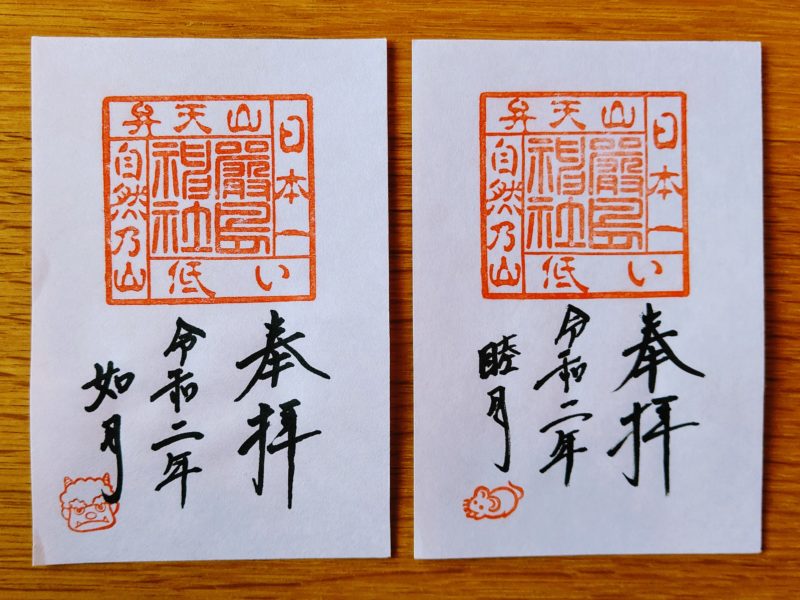 日本一
低い
弁天山
自然乃山
嚴島
神社
奉拝
令和二年
如月
日本一
低い
弁天山
自然乃山
嚴島
神社
奉拝
令和二年
睦月